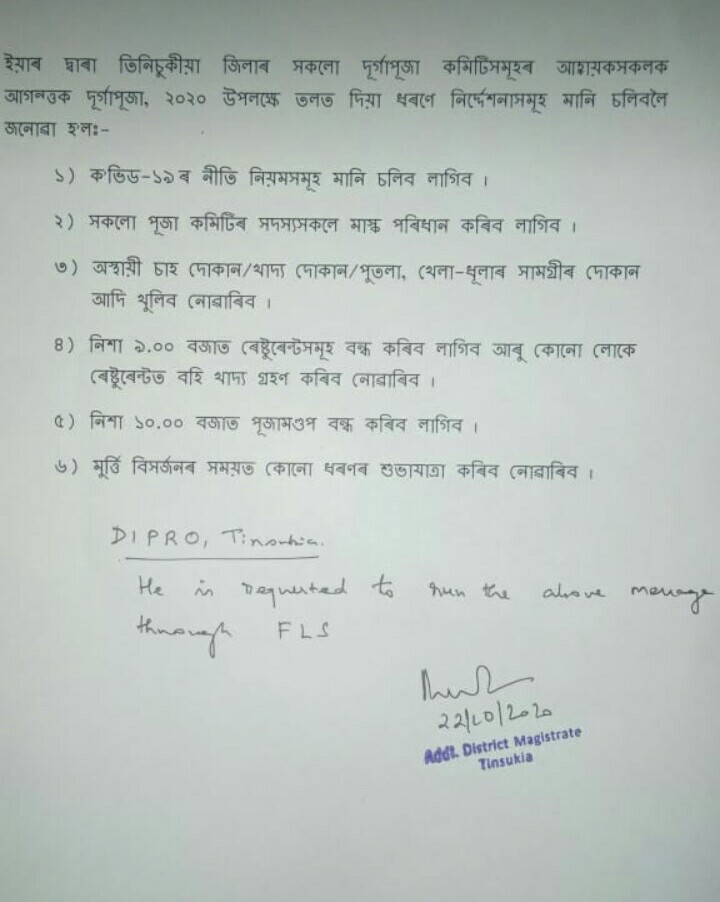 ইয়াৰ দ্বাৰা তিনিচুকীয়া জিলাৰ সকলো দূৰ্গাপূজা কমিটিসমূহৰ আহ্বায়কসকলক
আগন্তুক দূৰ্গাপূজা, ২০২০ উপলক্ষে তলত দিয়া ধৰণে নিৰ্দ্দেশনাসমূহ মানি চলিবলৈ
জনোৱা হ'লঃ-
১) ক'ভিড-১৯ৰ নীতি নিয়মসমূহ মানি চলিব লাগিব ।
২) সকলো পূজা কমিটিৰ সদস্যসকলে মাস্ক পৰিধান কৰিব লাগিব ।
৩) অস্থায়ী চাহ দোকান/খাদ্য দোকান/পুতলা, খেলা-ধূলাৰ সামগ্ৰীৰ দোকান
আদি খুলিব নোৱাৰিব ।
৪) নিশা ৯.০০ বজাত ৰেষ্টুৰেন্টসমূহ বন্ধ কৰিব লাগিব আৰু কোনো লোকে
ৰেষ্টুৰেন্টত বহি খাদ্য গ্ৰহণ কৰিব নোৱাৰিব ।
৫) নিশা ১০.০০ বজাত পূজামণ্ডপ বন্ধ কৰিব লাগিব ।
৬) মূৰ্ত্তি বিসৰ্জনৰ সময়ত কোনো ধৰণৰ শুভাযাত্ৰা কৰিব নোৱাৰিব ।
DIPRO, Tinsukia.
He is requested to run the above message
through FLS
22/10/2020
Addl. District Magistrate
Tinsukia